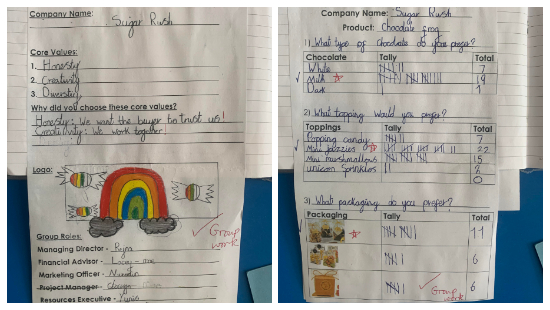 Company Name:
Sugar Rush
Core Values:
1. Honesty
2. Creativity
3. Diversity
Why did you choose these core values?
Honesty: We want the buyer to trust us!
Creativity: We work together!
Logo:
Group work
Group Roles:
Managing Director -
Financial Advisor -
Marketing Officer -
Project Manager -
Resources Executive -
Company Name: Sugar Rush
Product: Chocolate frog
1) What type of chocolate do you prefer?
Chocolate Tally Total
White 7
Milk 19
Dark 1
2) What topping would you prefer?
Toppings Tally Total
Popping candy 7
Mini jazzies 22
Mini marshmallows 15
unicorn Sprinkles 2
0
3) What packaging do you prefer?
Packaging Tally Total
11
6
6
Group work